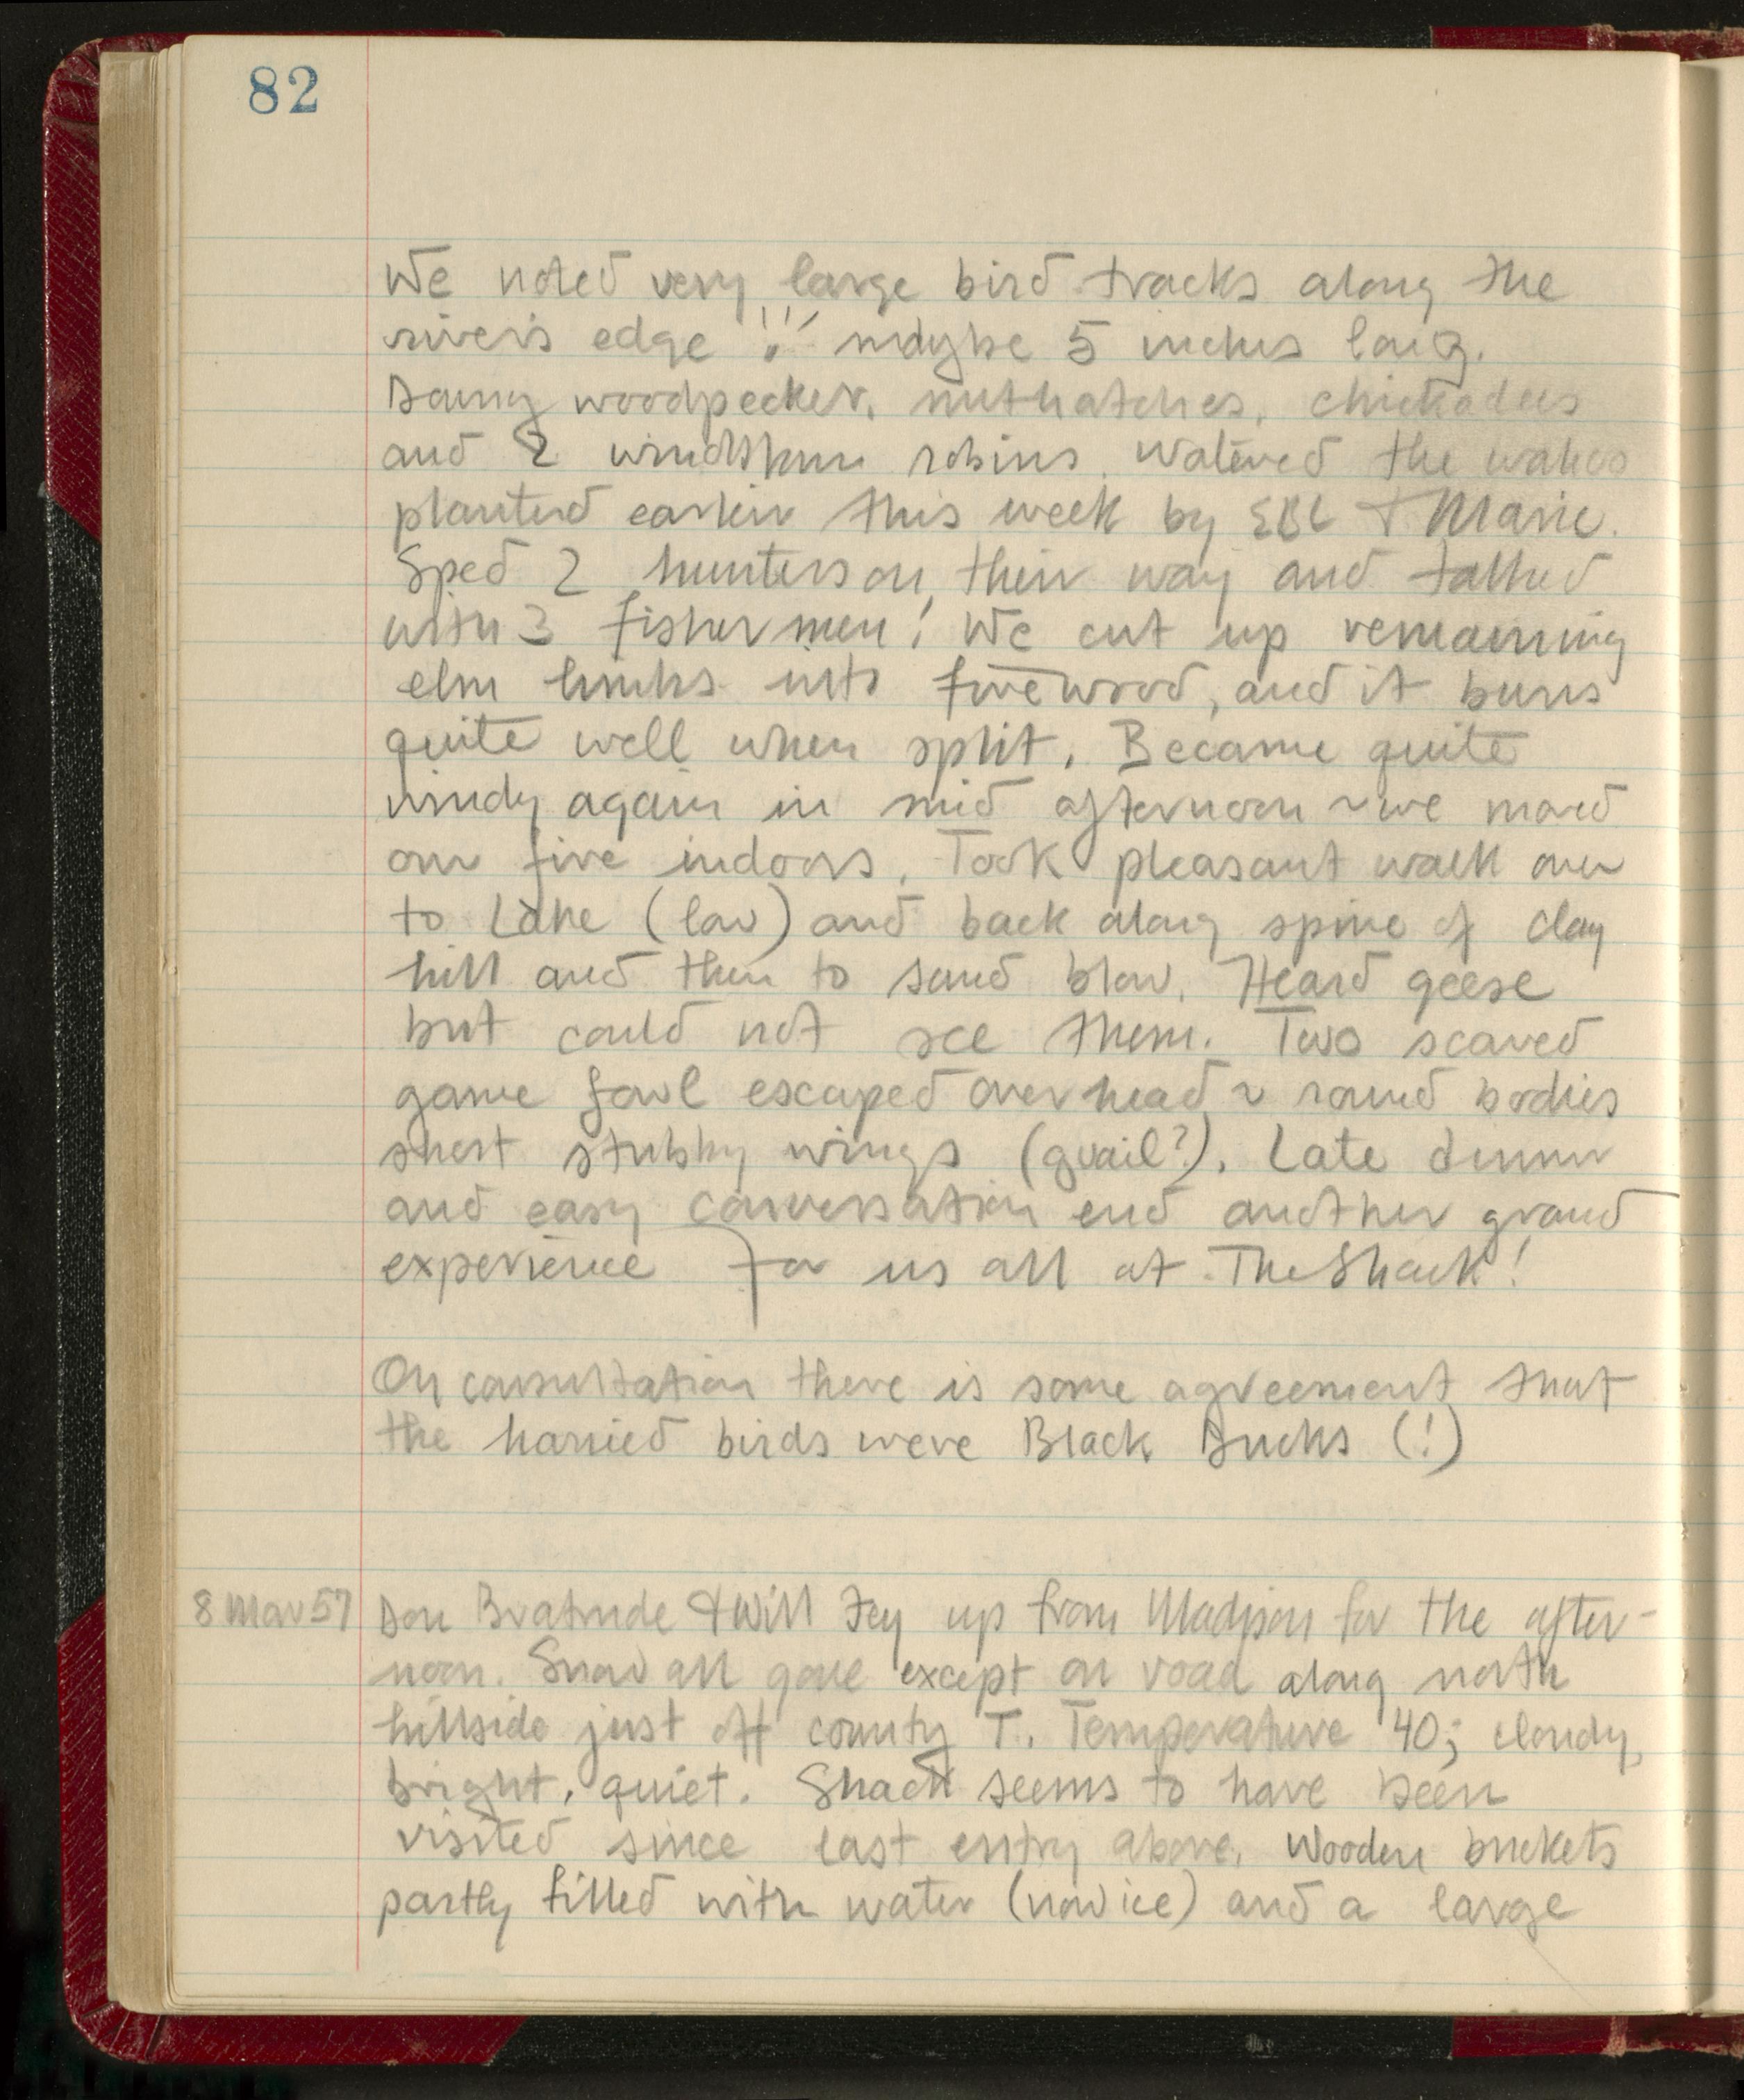 82
We noted very large bird tracks along the
river's edge !!! maybe 5 inches long.
Downy woodpecker, nuthatches, chickadees
and 2 windblown robins. Watered the wahoo
planted earlier this week by EBL & Marie.
Sped 2 hunters on their way and talked
with 3 fishermen! We cut up remaining
elm limbs into firewood, and it burns
quite well when split. Became quite
windy again in mid afternoon ~ we moved
our fire indoors. Took pleasant walk over
to Lake (low) and back along spine of clay
hill and then to sand blow. Heard geese
but could not see them. Two scared
game fowl escaped overhead ~ round bodies
short stubby wings (quail?). Late dinner
and easy conversation end another grand
experience for us all at The Shack!
On consultation there is some agreement that
the harried birds were Black Ducks (!)
8 Mar 57 Don Bratrude & Will Fey up from Madison for the after-
noon. Snow all gone except on road along north
hillside just off county T. Temperature 40; cloudy,
bright, quiet. Shack seems to have been
visited since last entry above. Wooden buckets
partly filled with water (now ice) and a large